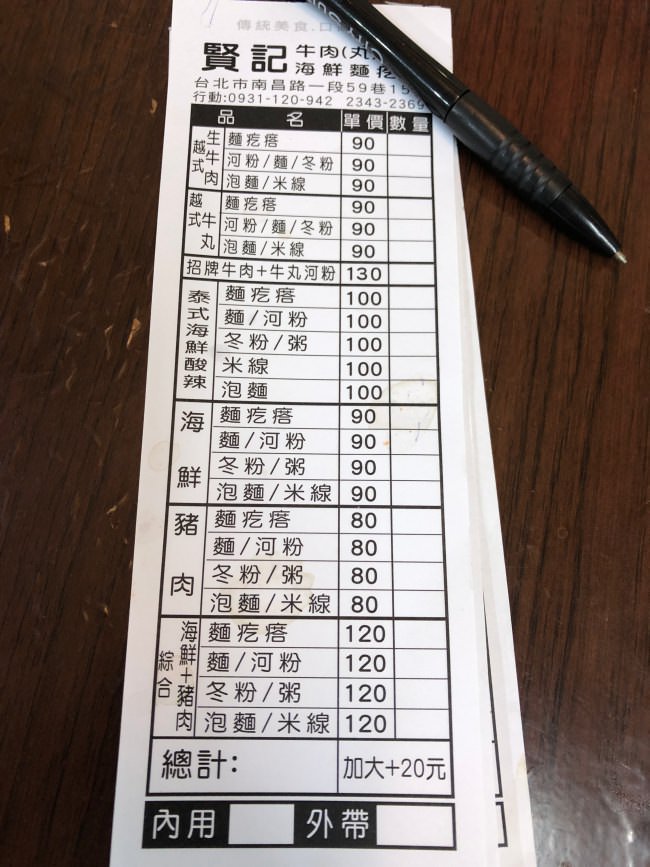 傳統美食.口
賢記 牛肉(丸
海鮮麵疙
台北市南昌路一段59巷15
行動:0931-120-942 2343-2369
品名 單價 數量
越式生牛肉 麵疙瘩 90
河粉/麵/冬粉 90
泡麵/米線 90
越式牛丸 麵疙瘩 90
河粉/麵/冬粉 90
泡麵/米線 90
招牌牛肉+牛丸河粉 130
泰式海鮮酸辣 麵疙瘩 100
麵/河粉 100
冬粉/粥 100
米線 100
泡麵 100
海鮮 麵疙瘩 90
麵/河粉 90
冬粉/粥 90
泡麵/米線 90
豬肉 麵疙瘩 80
麵/河粉 80
冬粉/粥 80
泡麵/米線 80
綜合 海鮮+豬肉 麵疙瘩 120
麵/河粉 120
冬粉/粥 120
泡麵/米線 120
總計: 加大+20元
內用 外帶